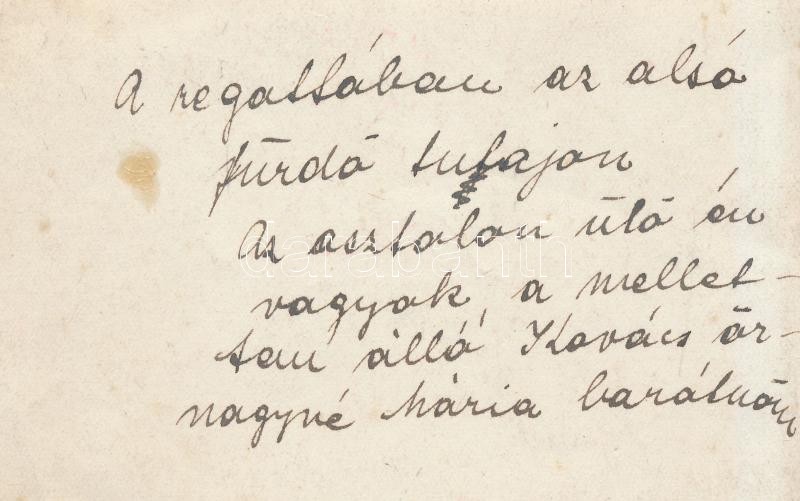 A regattában az alsó
fürdő tutajon
Az asztalon ülő én
vagyok, a mellet-
tem álló Kovács őr-
nagyné Mária barátnőm
darabanth